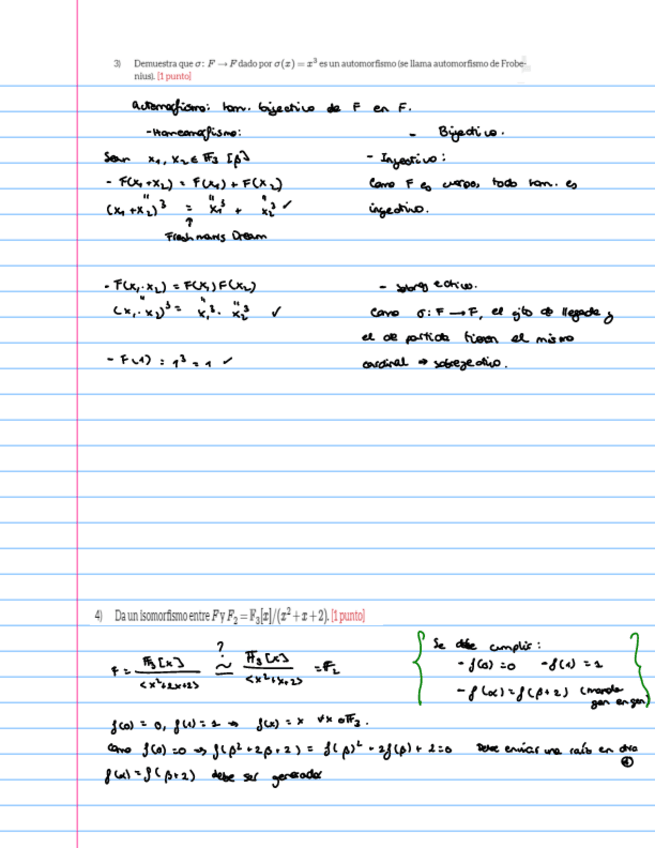 3) Demuestra que σ: F → F dado por σ(x) = x³ es un automorfismo (se llama automorfismo de Frobe-
nius). [1 punto]
automorfismo: hom. bijectivo de F en F.
- Homomorfismo:
Sean x₁, x₂ ∈ F₃ [β]
- F(x₁+x₂) = F(x₁) + F(x₂)
(x₁ + x₂)³ = x₁³ + x₂³ ✓
↑
Freshman's Dream
- F(x₁·x₂) = F(x₁)F(x₂)
(x₁·x₂)³ = x₁³ · x₂³ ✓
- F(1) = 1³ = 1 ✓
- Biyectivo.
- Inyectivo:
Como F es cuerpo, todo hom. es
inyectivo.
- sobreyectivo.
Como σ: F → F, el cjto de llegada y
el de partida tienen el mismo
cardinal ⇒ sobreyectivo.
4) Da un isomorfismo entre F y F₂ = F₃[x]/(x² + x + 2). [1 punto]
F = F₃[x] / <x²+2x+2> ≅? F₃[x] / <x²+x+2> = F₂
Se debe cumplir:
- f(0) = 0 - f(1) = 1
- f(α) = f(β+2) (manda
gen en gen)
f(0) = 0, f(1) = 1 ⇒ f(x) = x ∀x ∈ F₃.
Como f(0) = 0 ⇒ f(β² + 2β + 2) = f(β)² + 2f(β) + 2 = 0 Debe enviar una raíz en otra
f(α) = f(β+2) debe ser generador